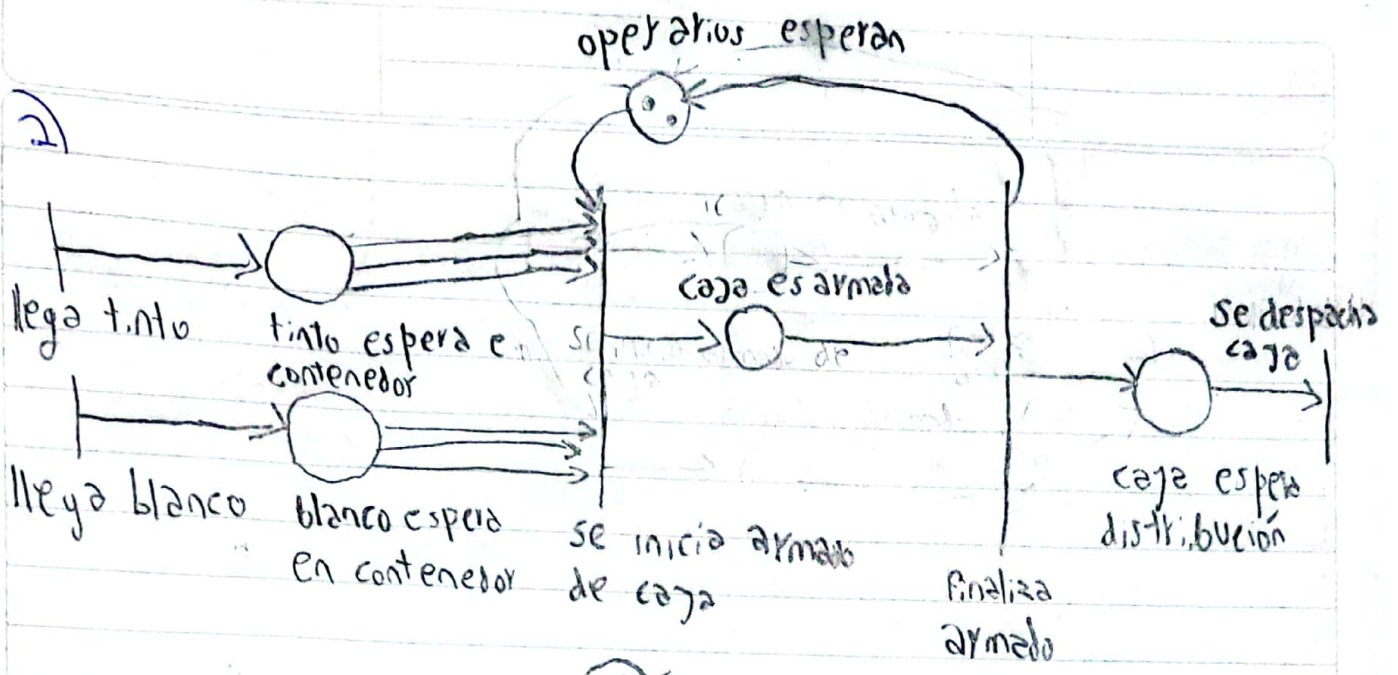 operarios esperan
2)
llega tinto
tinto espera e
contenedor
caja es armada
se despacha
caja
llega blanco
blanco espera
en contenedor
se inicia armado
de caja
finaliza
armado
caja espera
distribución